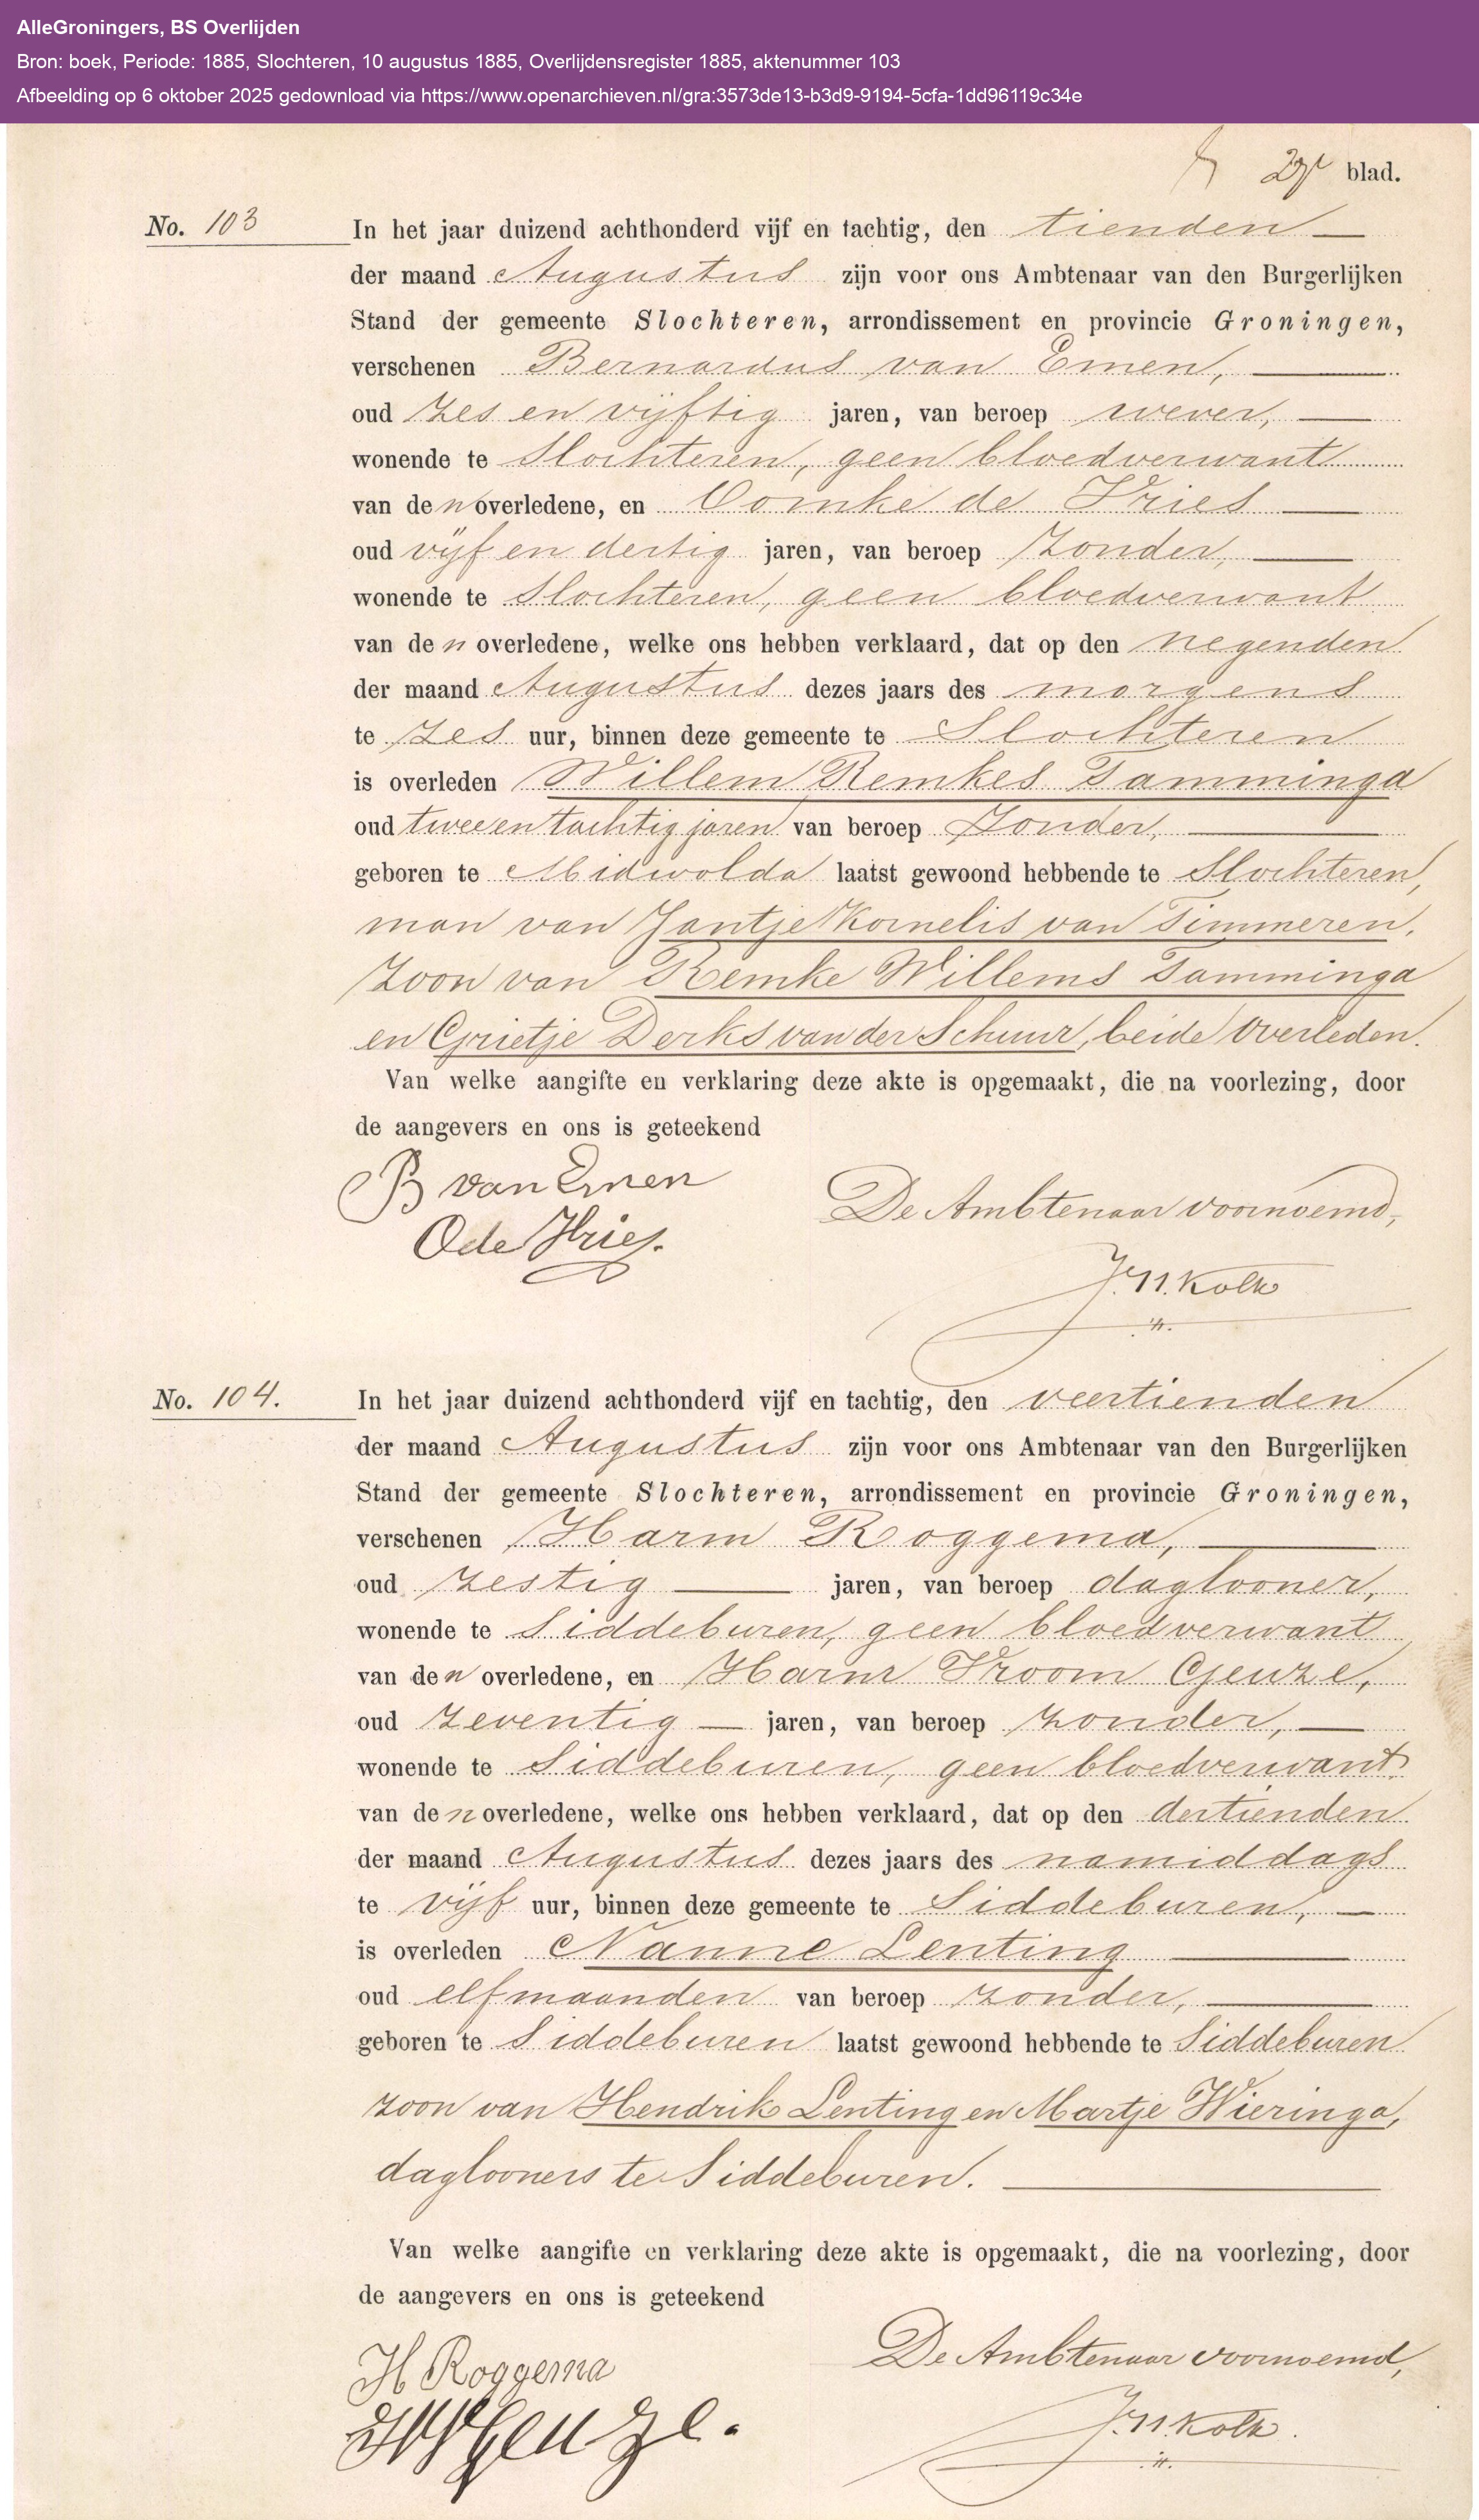 AlleGroningers, BS Overlijden
Bron: boek, Periode: 1885, Slochteren, 10 augustus 1885, Overlijdensregister 1885, aktenummer 103
Afbeelding op 6 oktober 2025 gedownload via https://www.openarchieven.nl/gra:3573de13-b3d9-9194-5cfa-1dd96119c34e
blad.
No. 103 In het jaar duizend achthonderd vijf en tachtig, den tienden
der maand Augustus zijn voor ons Ambtenaar van den Burgerlijken
Stand der gemeente Slochteren, arrondissement en provincie Groningen,
verschenen Bernardus van Emen,
oud zes en vijftig jaren, van beroep wever,
wonende te Slochteren, geen bloedverwant
van den overledene, en Oomke de Vries
oud vijf en dertig jaren, van beroep zonder,
wonende te Slochteren, geen bloedverwant
van den overledene, welke ons hebben verklaard, dat op den negenden
der maand Augustus dezes jaars des morgens
te zes uur, binnen deze gemeente te Slochteren
is overleden Willem Remkes Tamminga
oud twee en tachtig jaren van beroep zonder,
geboren te Midwolda laatst gewoond hebbende te Slochteren,
man van Jantje Kornelis van Timmeren,
zoon van Remke Willems Tamminga
en Grietje Derks van der Schuur, beide overleden.
Van welke aangifte en verklaring deze akte is opgemaakt, die na voorlezing, door
de aangevers en ons is geteekend
B van Emen
O de Vries.
De Ambtenaar voornoemd,
J. N. Kolk
No. 104. In het jaar duizend achthonderd vijf en tachtig, den veertienden
der maand Augustus zijn voor ons Ambtenaar van den Burgerlijken
Stand der gemeente Slochteren, arrondissement en provincie Groningen,
verschenen Harm Roggema,
oud zestig jaren, van beroep daglooner,
wonende te Siddeburen, geen bloedverwant
van den overledene, en Harm Vroom Geuze,
oud zeventig jaren, van beroep zonder,
wonende te Siddeburen, geen bloedverwant
van den overledene, welke ons hebben verklaard, dat op den dertienden
der maand Augustus dezes jaars des namiddags
te vijf uur, binnen deze gemeente te Siddeburen,
is overleden Nanne Lenting
oud elf maanden van beroep zonder,
geboren te Siddeburen laatst gewoond hebbende te Siddeburen
zoon van Hendrik Lenting en Martje Wieringa,
daglooners te Siddeburen.
Van welke aangifte en verklaring deze akte is opgemaakt, die na voorlezing, door
de aangevers en ons is geteekend
H Roggema
De Ambtenaar voornoemd,
H V Geuze.
J. N. Kolk.